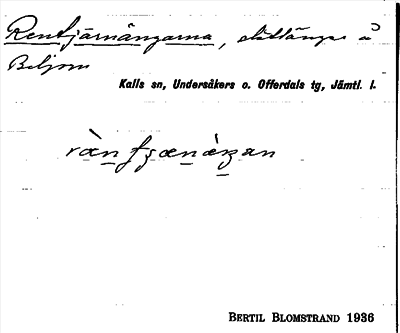 Rentjärnängarna, slåttängar å
Biljom
Kalls sn, Undersåkers o. Offerdals tg, Jämtl. l.
BERTIL BLOMSTRAND 1936